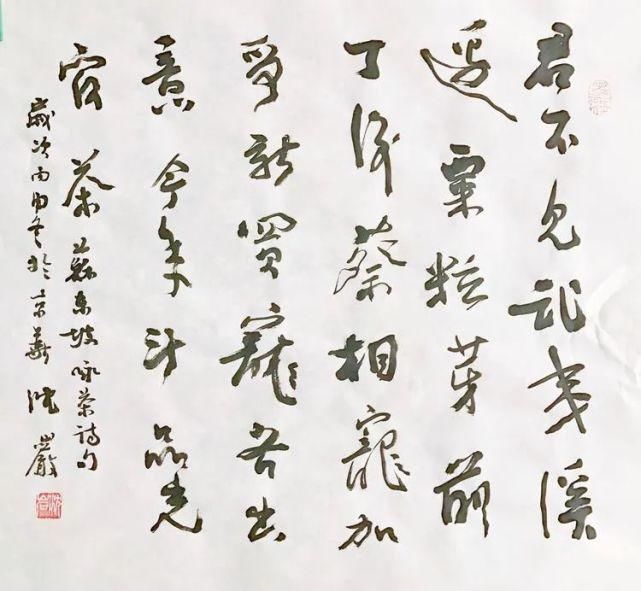 君不見武夷溪
邊粟粒芽前
丁後蔡相寵加
爭新買寵各出
意今年斗品充
官茶 蘇東坡詠茶詩句
歲次丙申冬於京華 沈巖